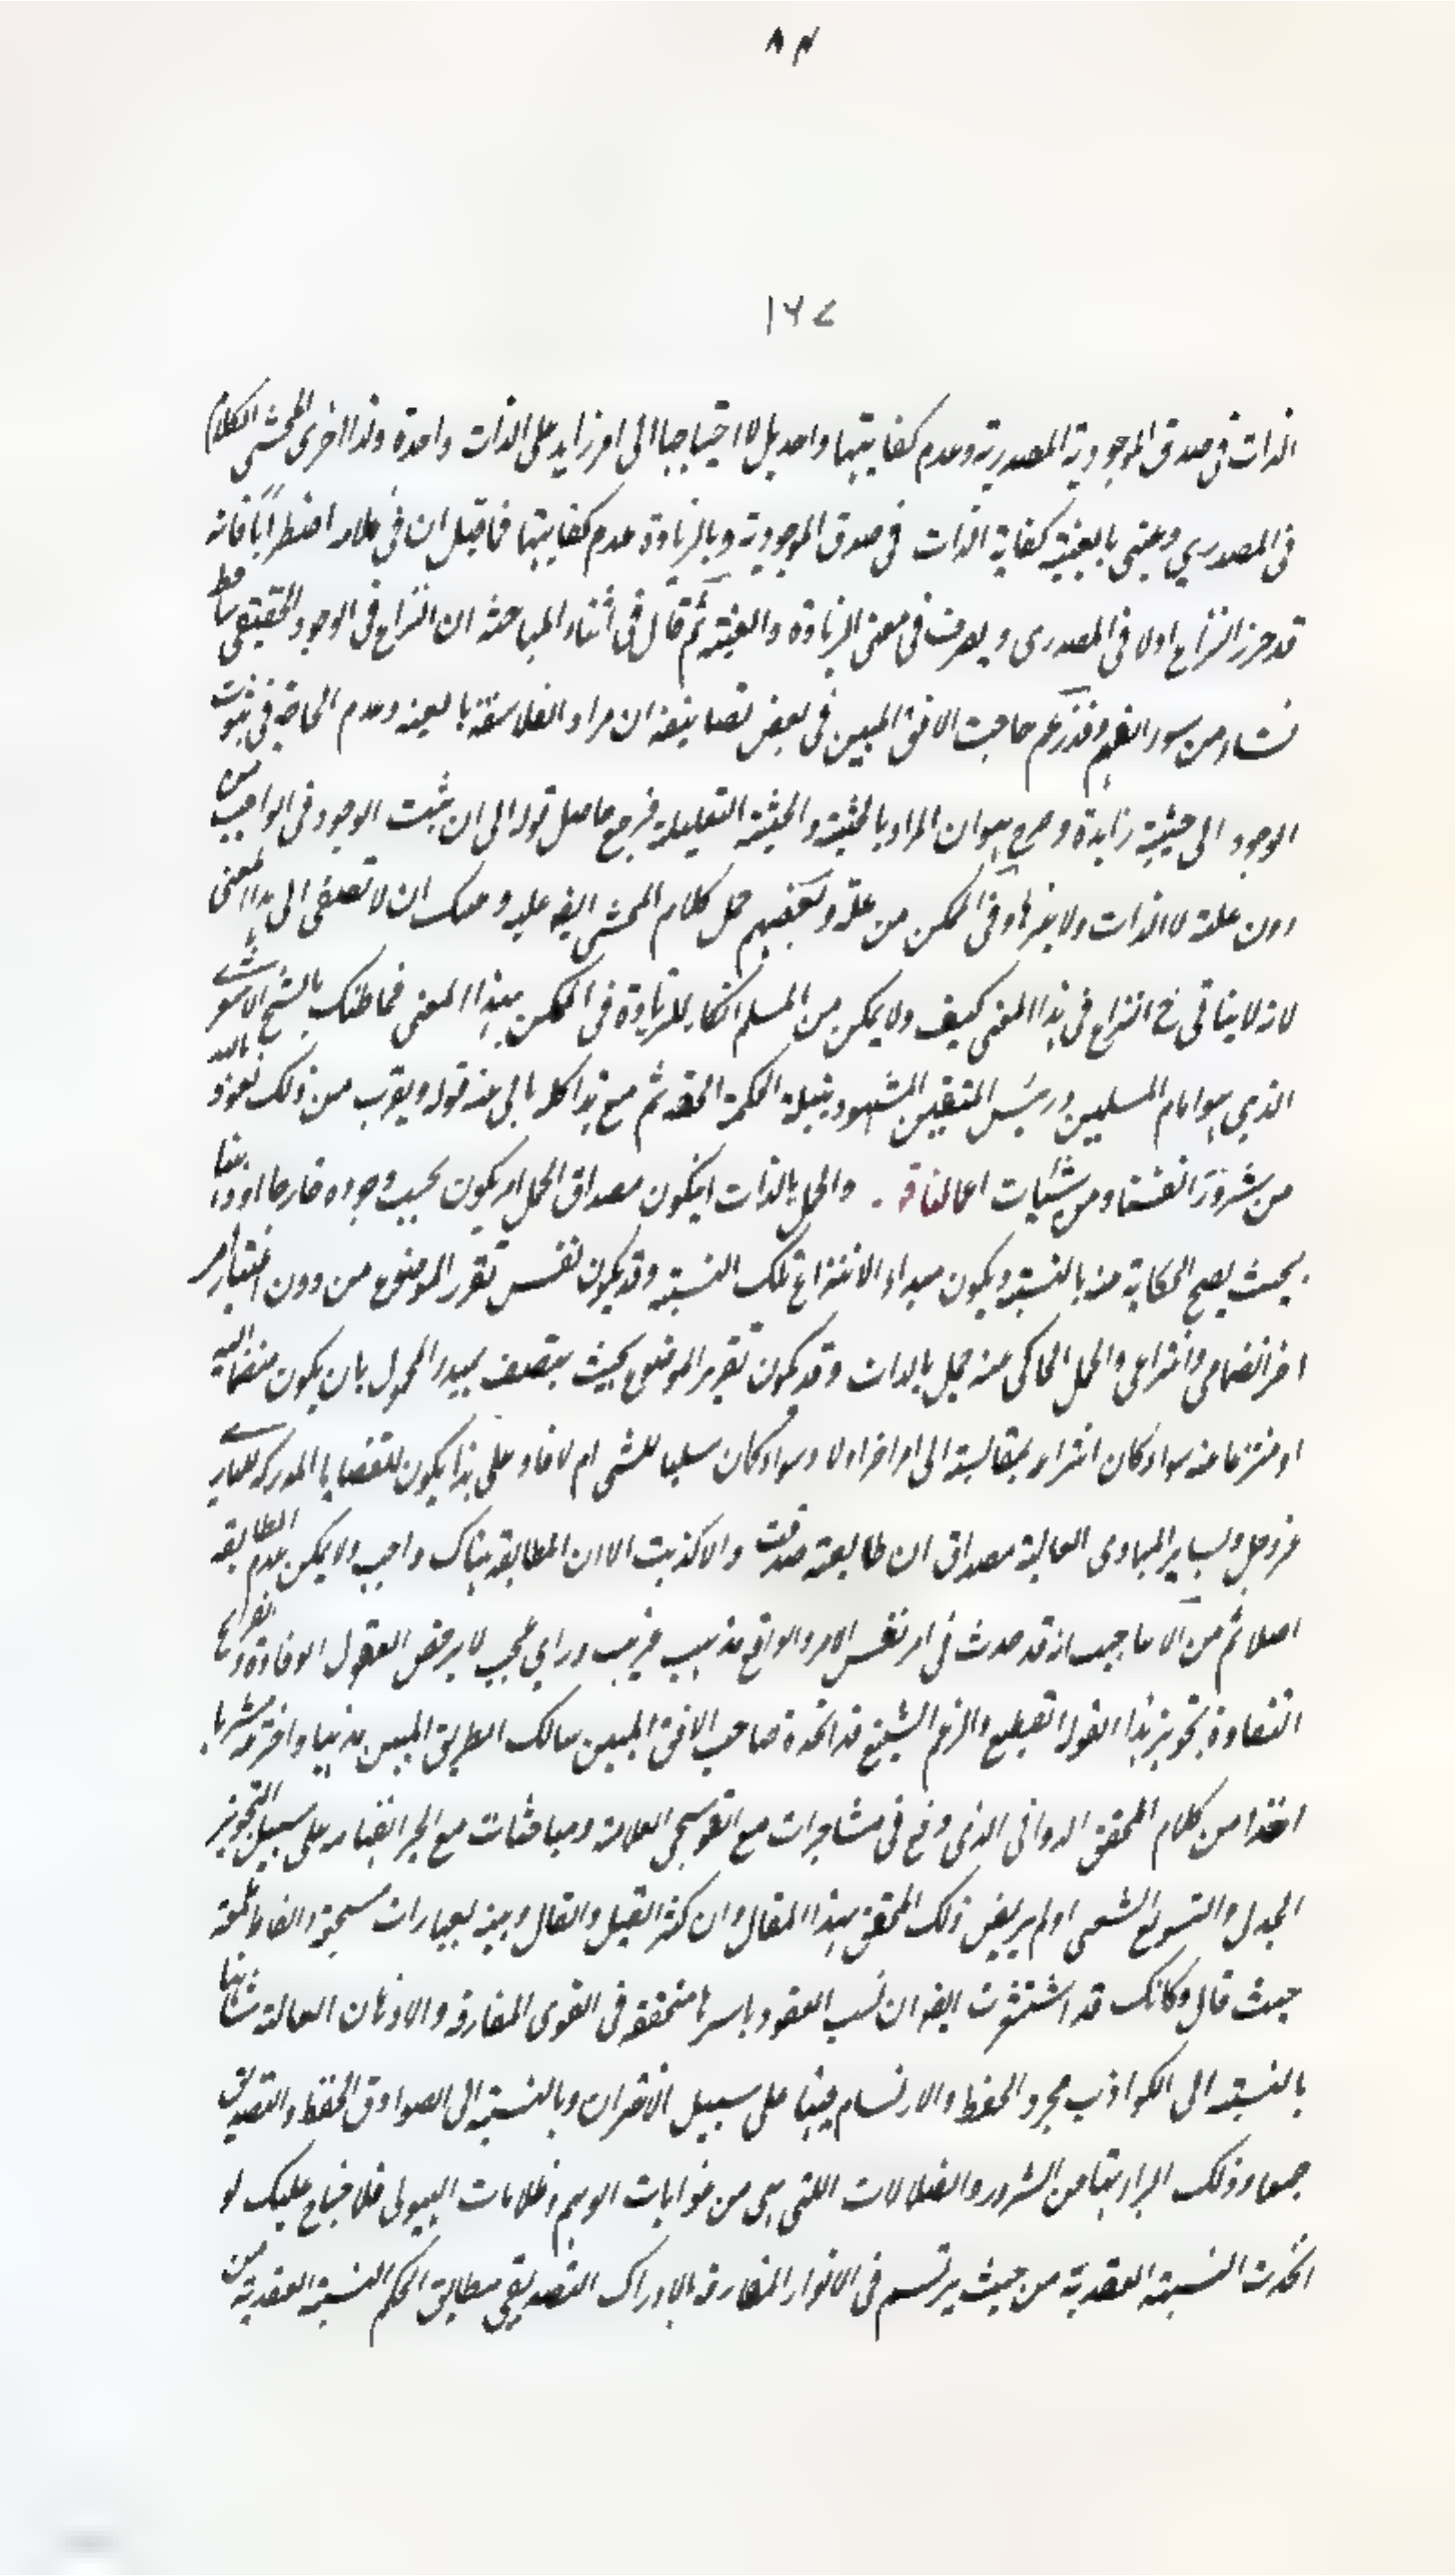 ٨٤
١٦٧
الذات فى صدق الموجودية المصدرية وعدم كفايتها واحد بل لا احتياجها الى امر زايد على الذات واحدة ولذا اخرى المحشى الكلام
فى المصدري وعنى بالعينية كفاية الذات فى صدق الموجودية وبالزيادة عدم كفايتها فما قيل ان فى كلامه اضطرابا فانه
قد حرز النزاع اولا فى المصدرى و يصرف فى معنى الزيادة والعينية ثم قال فى اثناء المباحثة ان النزاع فى الوجود الحقيقى ساقط
نشاء من سوء الفهم وقد زعم صاحب الافق المبين فى بعض تصانيفه ان مراد الفلاسفة بالعينية وعدم الحاجة فى ثبوت
الوجود الى حيثية زايدة و صرح هو ان المراد بالحيثية والحيثية التعليلية فرجع حاصل قوله الى ان ثبت الوجود فى الواجب من
دون علة لا الذات ولا غيرها وفى الممكن من علة وبعضهم حمل كلام المحشى ايضا عليه و عليك ان لا تصغى الى هذا المعنى
لانه لا يتاتى ح النزاع فى هذا المعنى كيف ولا يمكن من المسلم انكار الزيادة فى الممكن بهذا المعنى فما ظنك بالشيخ الاشعرى
الذي هو امام المسلمين ورئيس المتقين المشهود بنيله الحكمة الحقة ثم مع هذا كله يابى عنه قوله ويقرب من ذلك نعوذ بالله
من شرور انفسنا ومن سيئات اعمالنا قوله . والحمل بالذات ان يكون مصداق الحمل اه يكون بحسب وجوده خارجا او ذهنا
بحيث يصح الحكاية عنه بالنسبة ويكون مبداء الانتزاع تلك النسبة وقد يكون نفس تقرر الموضوع من دون اعتبار امر
اخر انضمامى وانتزاعى والحمل الحاكى عنه حمل بالذات وقد يكون تقرر الموضوع بحيث يتصف بمبدء المحمول بان يكون منضما اليه
او منتزعا عنه سواء كان انتزاعه بمقايسة الى امر اخر او لا وسواء كان سلبا للشى ام لا فاذ على هذا يكون للقضايا المدركة للبارى
عزوجل ولساير المبادى العالية مصداق ان طابعته صدقت والا كذبت الا ان المطابقة هناك واجب ولا يمكن عدم المطابقة
اصلا ثم من الاعاجيب انه قد حدث فى امر نفس الامر والواقع مذهب غريب وراي عجيب لا يرخص العقول الوقادة والقرايح
النقادة بتجويز هذا القول الفظيع والزعم الشنيع قد اتخذه صاحب الافق المبين سالك الطريق المبين مذهبا واختره مشربا
اخذا من كلام المحقق الدوانى الذى وقع فى مشاجرات مع القوشجى العلامة ومباحثات مع الحبر القمقامة على سبيل التجويز
الجدلى والتسويغ الشعرى او لم يرض ذلك المحقق بهذا المقال وان كثر القيل والقال وبينه بعبارات مسجعة والفاظ
حيث قال وكانك قد استشعرت ايضا ان نسب العقود باسرها متحققة فى القوى المفارقة والاذهان العالية شانها
بالنسبة الى الكواذب مجرد الحفظ والارتسام فيها على سبيل الاقتران وبالنسبة الى الصوادق الحفظ والتصديق
جميعا وذلك لبراءتها من الشرور والضلالات التى هى من غوايات الوهم وظلمات الهيولى فلا جناح عليك لو
اخذت النسبة العقدية من حيث يرتسم فى الانوار المفارقة بالادراك التصديقى مطابق الحكم النسبة العقدية من